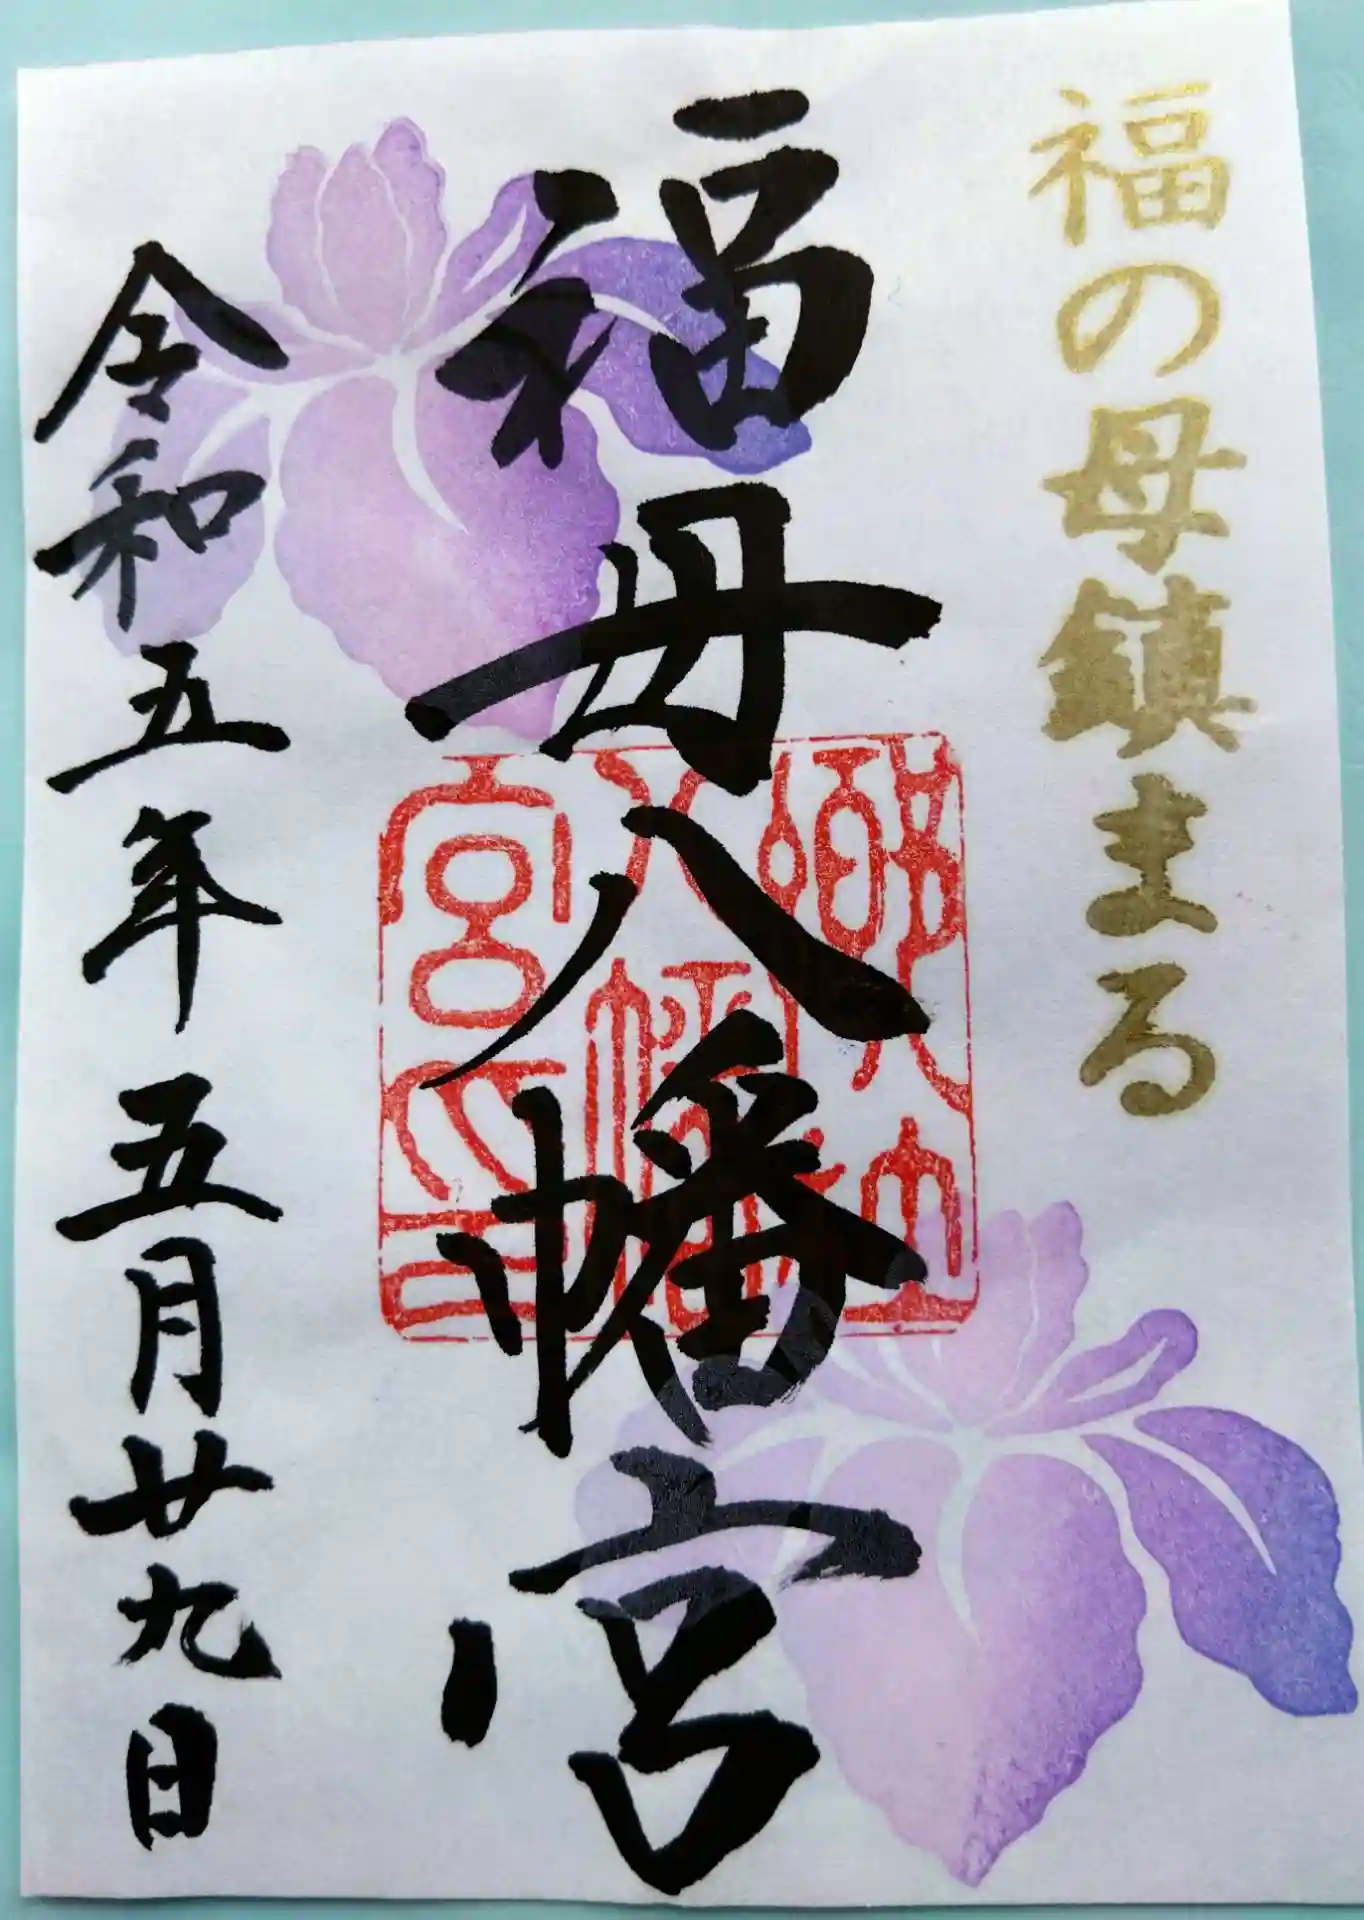 福の母鎮まる
福母八幡宮
令和五年五月廿九日